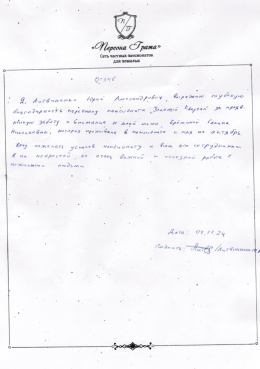 «Персона Гранта»
Сеть частных пансионатов
для пожилых
Отзыв
Я, Литвиненко Юрий Александрович выражаю глубокую
благодарность персоналу пансионата "Золотой
заботу и внимание к моей маме
Николаевне, которая проживала в пансионате с мая по октябрь
Хочу пожелать успехов пансионату и всем его сотрудникам
в их непростой но очень важной и полезной работе с
пожилыми людьми.
Дата: 04.11.24
Подпись